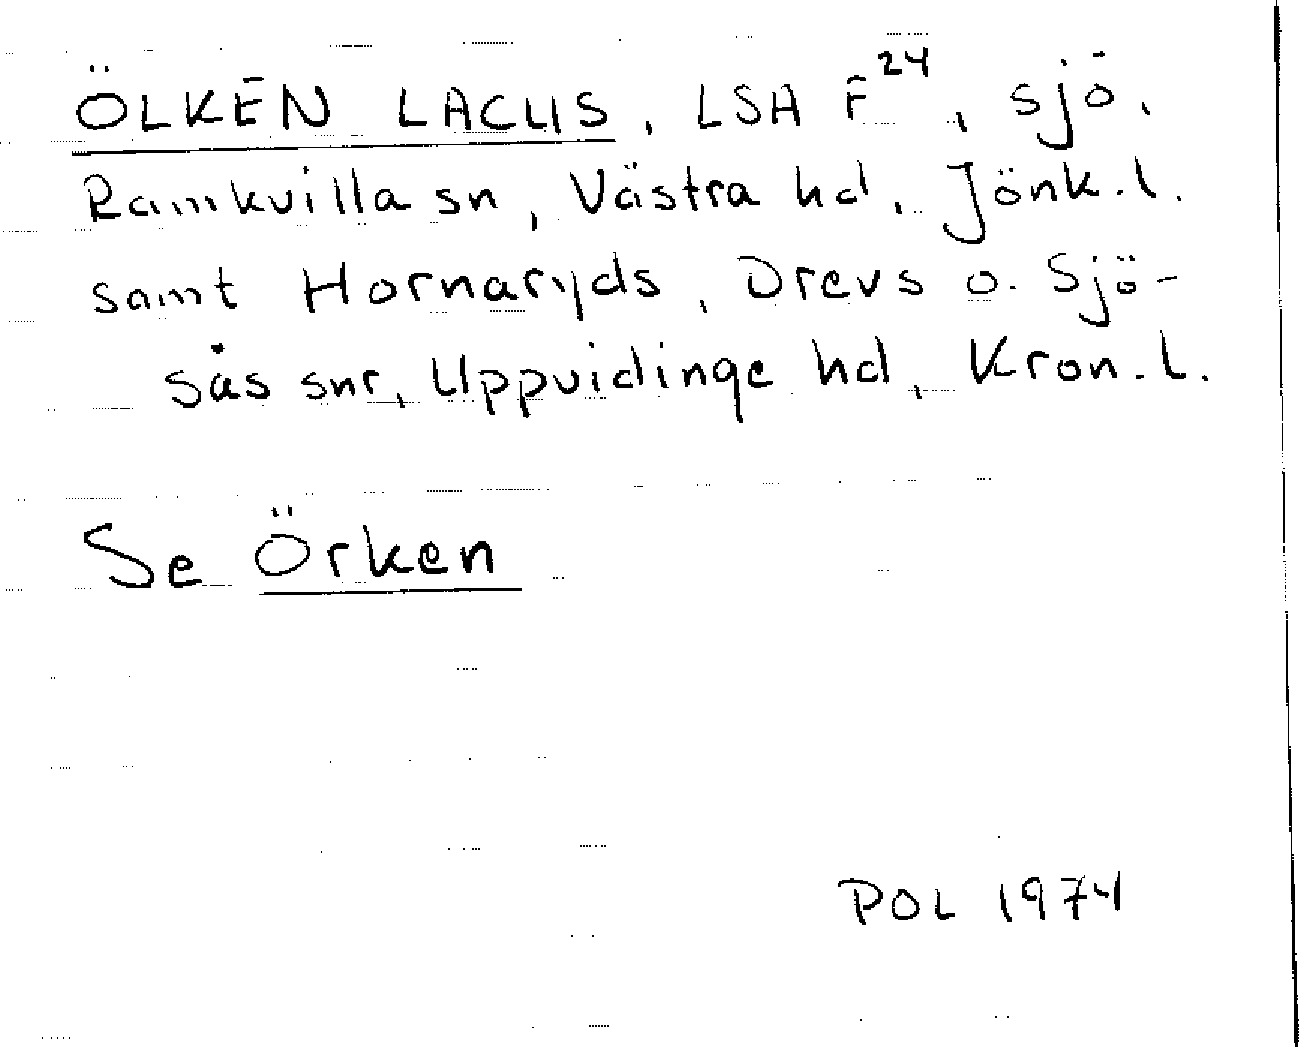 ÖLKEN LACUS, LSA F²⁴, sjö,
Ramkvilla sn, Västra hd, Jönk.l.
samt Hornaryds, Drevs o. Sjö-
sås snr, Uppvidinge hd, Kron.l.
Se Örken
POL 1974